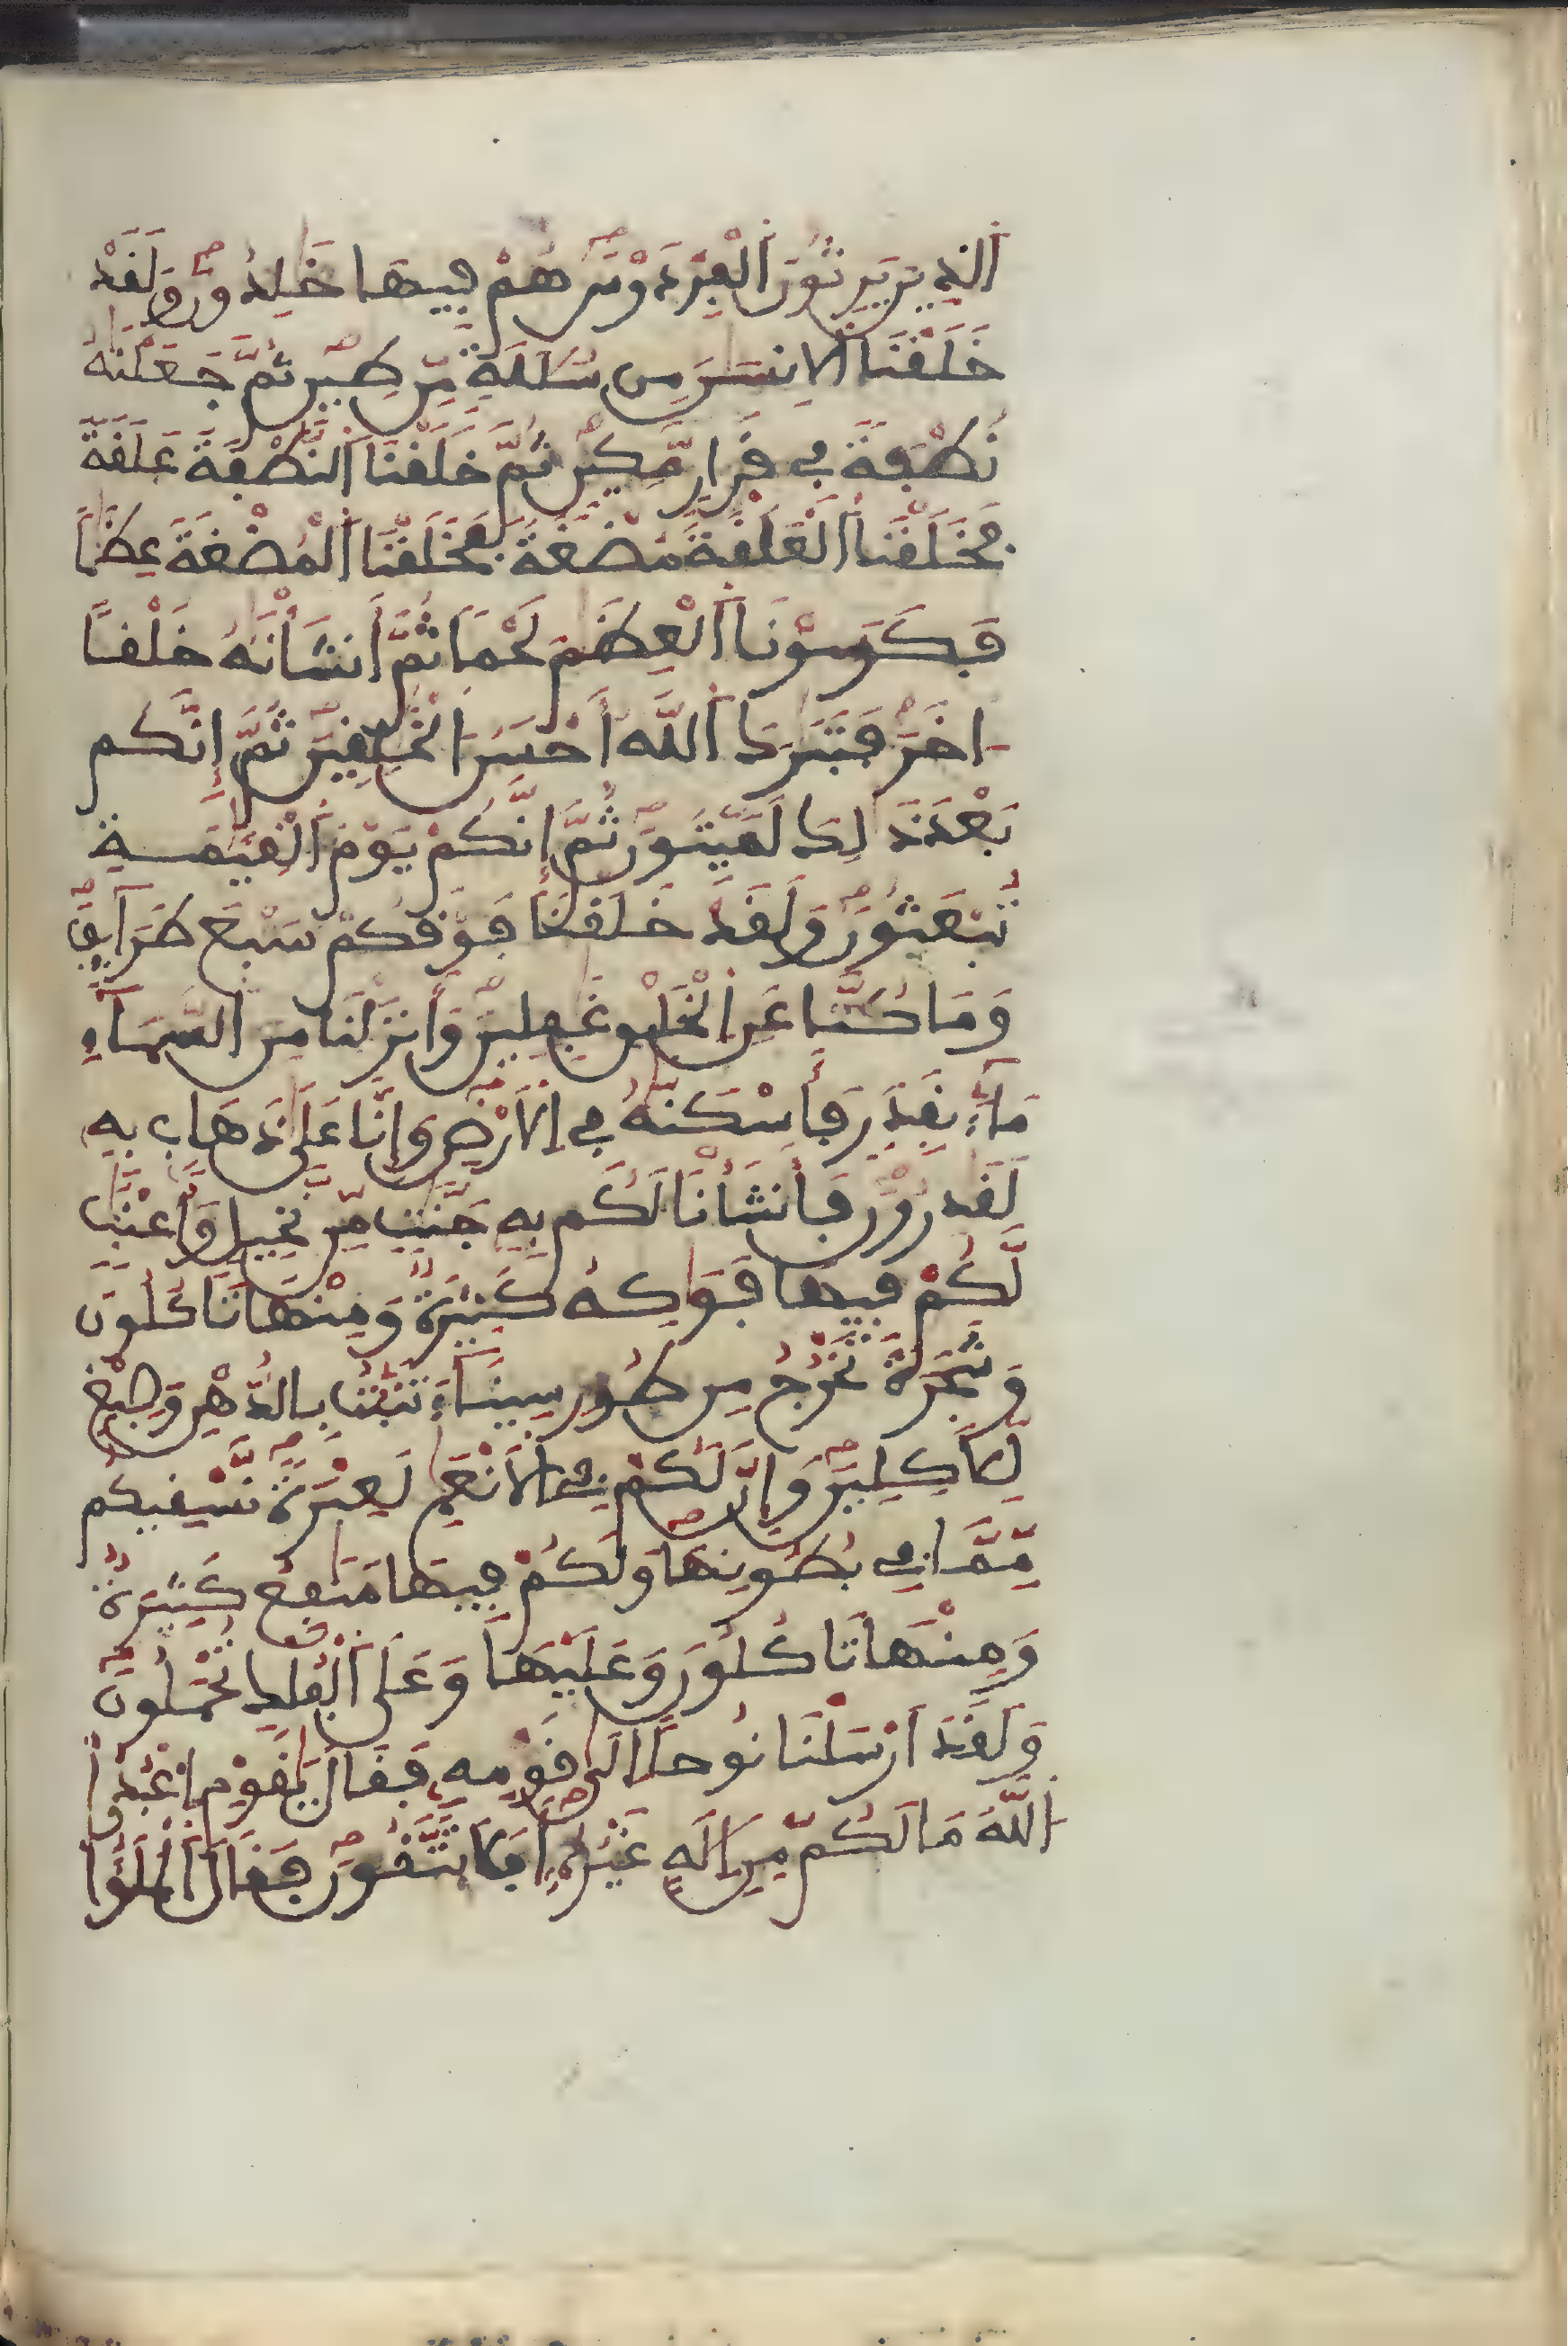 اَلذِينَ يَرِثُونَ اَلْفِرْدَوْسَ هُمْ فِيهَا خَٰلِدُونَ وَلَقَدْ
خَلَقْنَا اَلِانسَٰنَ مِن سُلَٰلَةٍ مِّن طِينٍ ثُمَّ جَعَلْنَٰهُ
نُطْفَةً فِي قَرَارٍ مَّكِينٍ ثُمَّ خَلَقْنَا اَلنُّطْفَةَ عَلَقَةً
فَخَلَقْنَا اَلْعَلَقَةَ مُضْغَةً فَخَلَقْنَا اَلْمُضْغَةَ عِظَٰماً
فَكَسَوْنَا اَلْعِظَٰمَ لَحْماً ثُمَّ أَنشَأْنَٰهُ خَلْقاً
اخَرَ فَتَبَٰرَكَ اَللَّهُ أَحْسَنُ اُلْخَٰلِقِينَ ثُمَّ إِنَّكُم
بَعْدَ ذَٰلِكَ لَمَيِّتُونَ ثُمَّ إِنَّكُمْ يَوْمَ اَلْقِيَٰمَةِ
تُبْعَثُونَ وَلَقَدْ خَلَقْنَا فَوْقَكُمْ سَبْعَ طَرَآئِقَ
وَمَا كُنَّا عَنِ اِلْخَلْقِ غَٰفِلِينَ وَأَنزَلْنَا مِنَ اَلسَّمَآءِ
مَآءً بِقَدَرٍ فَأَسْكَنَّٰهُ فِي اِلَارْضِ وَإِنَّا عَلَىٰ ذَهَابٍ بِهِ
لَقَٰدِرُونَ فَأَنشَأْنَا لَكُم بِهِ جَنَّٰتٍ مِّن نَّخِيلٍ وَأَعْنَٰبٍ
لَّكُمْ فِيهَا فَوَٰكِهُ كَثِيرَةٌ وَمِنْهَا تَاكُلُونَ
وَشَجَرَةً تَخْرُجُ مِن طُورِ سِينَآءَ تَنۢبُتُ بِالدُّهْنِ وَصِبْغٍ
لِّلَاكِلِينَ وَإِنَّ لَكُمْ فِي اِلَانْعَٰمِ لَعِبْرَةً نَّسْقِيكُم
مِّمَّا فِي بُطُونِهَا وَلَكُمْ فِيهَا مَنَٰفِعُ كَثِيرَةٌ
وَمِنْهَا تَاكُلُونَ وَعَلَيْهَا وَعَلَى اَلْفُلْكِ تُحْمَلُونَ
وَلَقَدَ اَرْسَلْنَا نُوحاً اِلَىٰ قَوْمِهِ فَقَالَ يَٰقَوْمِ اِعْبُدُوا
اُللَّهَ مَا لَكُم مِّنِ اِلَٰهٍ غَيْرُهُ أَفَلَا تَتَّقُونَ فَقَالَ اَلْمَلَؤُا